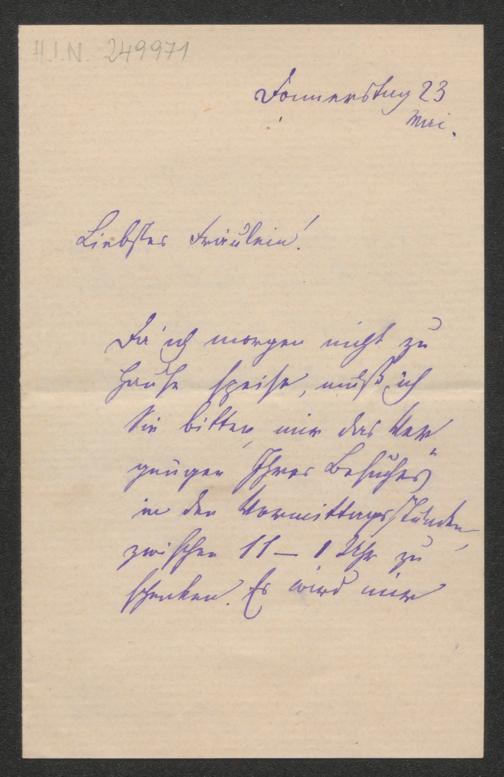 H.I.N. 249971
Donnerstag 23
Mai.
Liebstes Fräulein!
Da ich morgen nicht zu
Hause speise, muß ich
Sie bitten, mir das Ver
gnügen Ihres Besuches
in den Vormittagsstunden,
zwischen 11 – 1 Uhr zu
schenken. Es wird mir